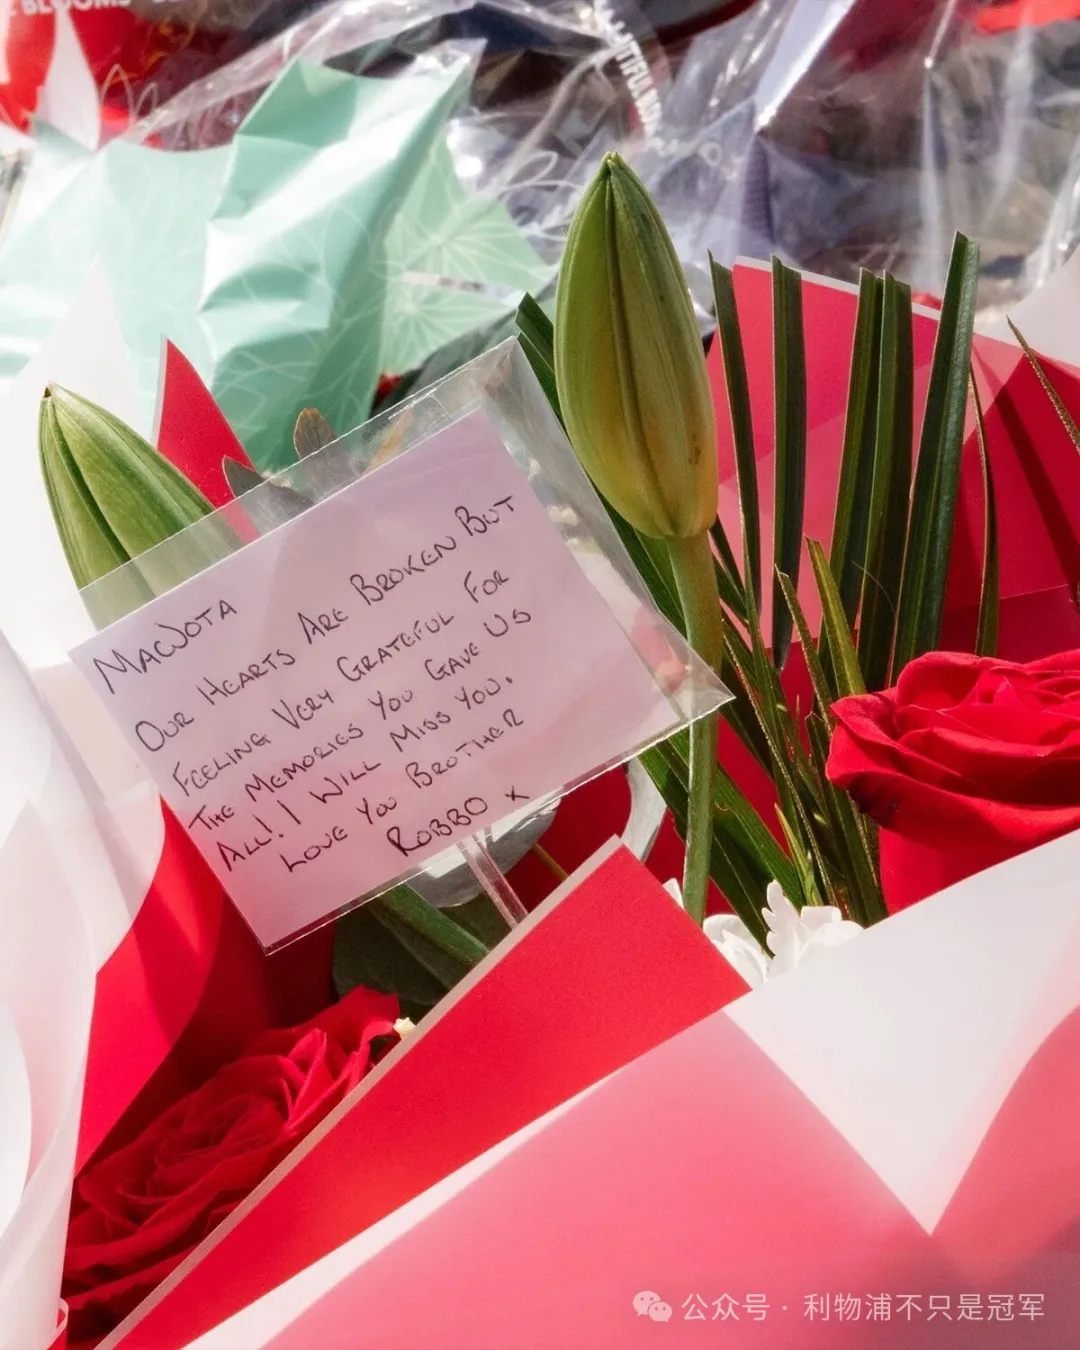 BLOOMS
MACJOTA
OUR HEARTS ARE BROKEN BUT
FEELING VERY GRATEFUL FOR
THE MEMORIES YOU GAVE US
ALL!. I WILL MISS YOU.
LOVE YOU BROTHER
ROBBO X
公众号 · 利物浦不只是冠军